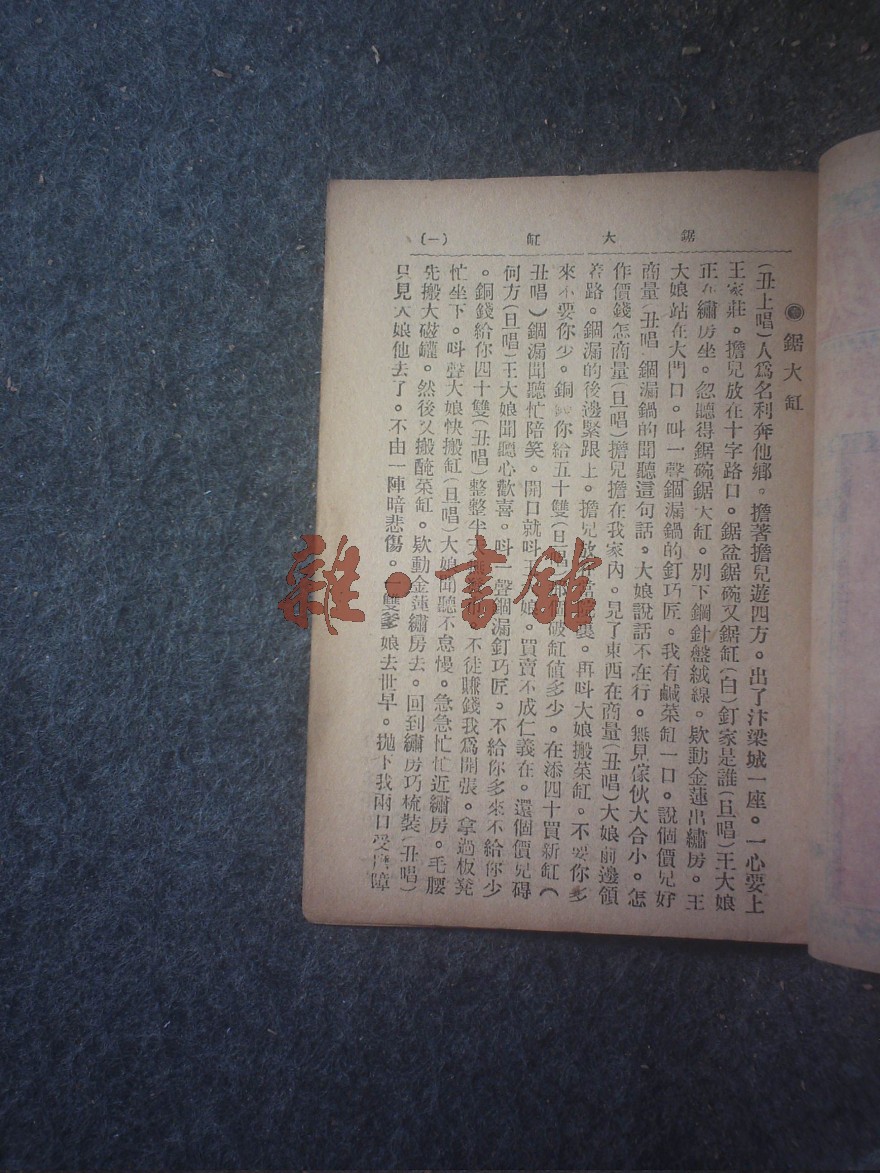 鋸大缸 (一)
鋸大缸
(丑上唱)人爲名利奔他鄉。擔著擔兒遊四方。出了汴梁城一座。一心要上
王家莊。擔兒放在十字路口。鋸盆鋸碗又鋸缸(白)釘家是誰(旦唱)王大娘
正在繡房坐。忽聽得鋸碗鋸大缸。別下鋼針盤絨線。欵動金蓮出繡房。王
大娘站在大門口。叫一聲錮漏鍋的釘巧匠。我有鹹菜缸一口。說個價兒好
商量(丑唱 錮漏鍋的聞聽這句話。大娘說話不在行。無見傢伙大合小。怎
作價錢怎商量(旦唱)擔兒擔在我家內。見了東西在商量(丑唱)大娘前邊領
着路。錮漏的後邊緊跟上。擔兒放 再呌大娘搬菜缸。不要你多
來不要你少。銅 你給五十雙(旦唱 破缸値多少。在添四十買新缸(
丑唱)錮漏聞聽忙陪笑。開口就呌王 娘。買賣不成仁義在。還個價兒碍
何方(旦唱)王大娘聞聽心歡喜。呌一聲錮漏釘巧匠。不給你多來不給你少
。銅錢給你四十雙(丑唱)整整半天 不徒賺錢我爲開張。拿過板凳
忙坐下。呌聲大娘快搬缸(旦唱)大娘聞聽不怠慢。急急忙忙近繡房。毛腰
先搬大磁罐。然後又搬醃菜缸。欵動金蓮繡房去。回到繡房巧梳裝(丑唱)
只見大娘他去了。不由一陣暗悲傷。一雙爹娘去世早。抛下我兩口受 障